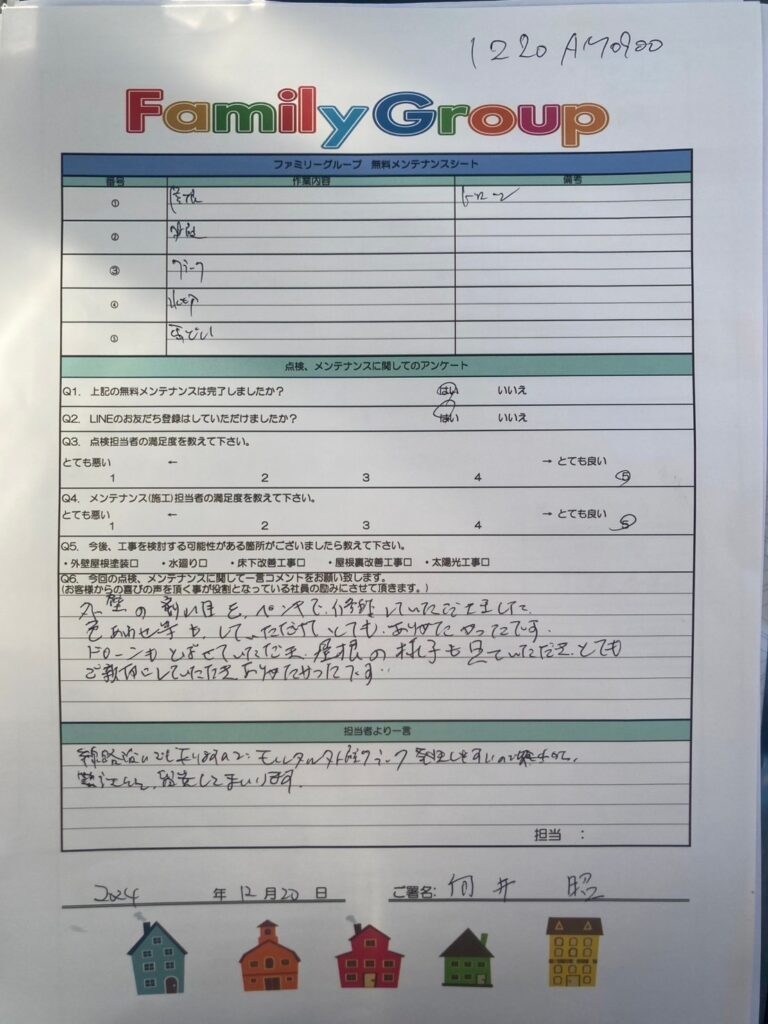 1220 AM0900
Family Group
ファミリーグループ 無料メンテナンスシート
番号 作業内容 備考
① 屋根 ドローン
②
③ クラック
④
⑤ 雨どい
点検、メンテナンスに関してのアンケート
Q1. 上記の無料メンテナンスは完了しましたか? はい いいえ
Q2. LINEのお友だち登録はしていただけましたか? はい いいえ
Q3. 点検担当者の満足度を教えて下さい。
とても悪い ← → とても良い
1 2 3 4 5
Q4. メンテナンス(施工)担当者の満足度を教えて下さい。
とても悪い ← → とても良い
1 2 3 4 5
Q5. 今後、工事を検討する可能性がある箇所がございましたら教えて下さい。
・外壁屋根塗装□ ・水廻り□ ・床下改善工事□ ・屋根裏改善工事□ ・太陽光工事□
Q6. 今回の点検、メンテナンスに関して一言コメントをお願い致します。
(お客様からの喜びの声を頂く事が役割となっている社員の励みにさせて頂きます。)
外壁の割れ目を、ペンキで、修理していただきました、
色あわせ等も、していただけてとても、ありがたかったです.
ドローンもとばせていただき、屋根の様子も見ていただき、とても
ご親切にしていただきありがたかったです..
担当者より一言
線路沿いでもありますので モルタル クラック 発生しやすいので
してまいります.
担当 :
2024 年 12月20日 ご署名: 井 昭